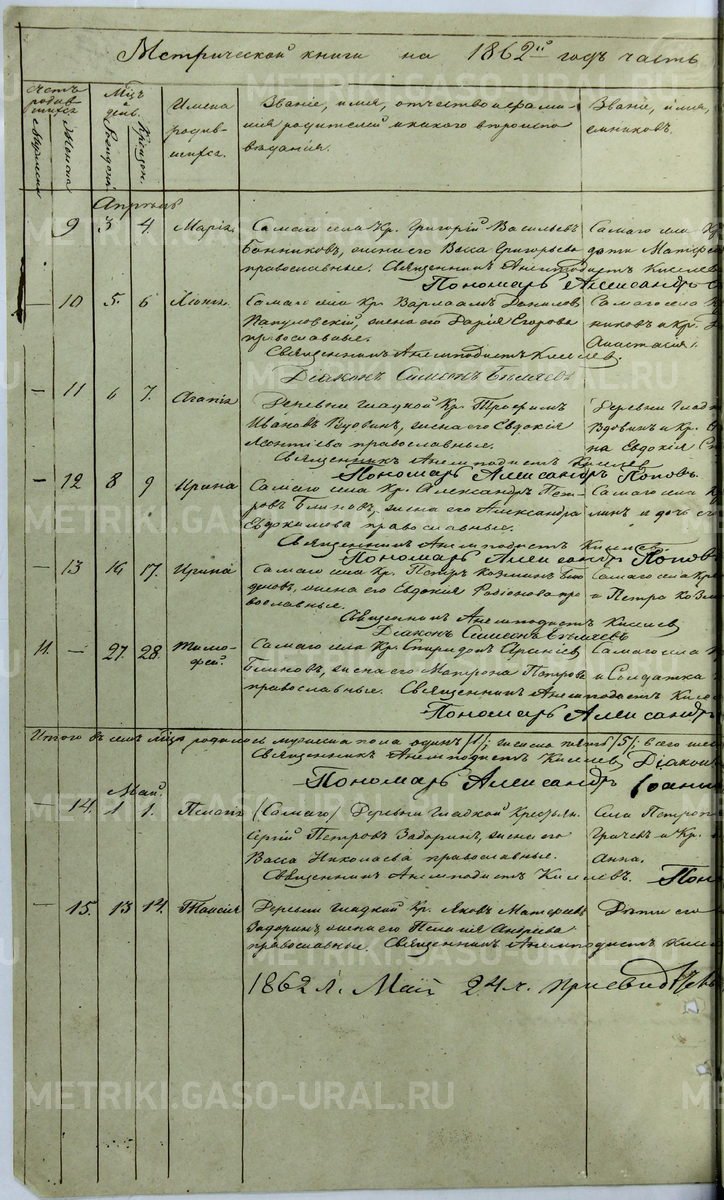 Метрической книги на 1862й годъ часть
Счетъ родившихся
Мужеска
Женска
Мѣсяцъ и день.
Рожденія
Крещен.
Имена родившихся.
Званіе, имя, отчество и фамилія родителей и какого вѣроисповѣданія.
Званіе, имя,
емниковъ.
Апрѣль
9 3 4. Марія.
Самаго села Кр. Григорій Васильевъ
Банниковъ, жена его Васса Григорьева
православные. Священникъ Анемподистъ Киселев
Пономарь Александръ
Самаго села
— 10 5. 6 Хіонія.
Самаго села Кр. Варлаамъ Данилов
жена его Дарія Егорова
православные.
Священникъ Анемподистъ Киселев.
Діаконъ Симеонъ
Самаго села
никовъ и кр.
Анастасія.
— 11 6 7. Агапія
Деревни Гладкой Кр. Трофимъ
Ивановъ Вдовинъ, жена его Евдокія
Леонтіева православные.
Священникъ Анемподистъ Киселев
Пономарь Александръ Поповъ.
Деревни Глад
Вдовинъ и Кр.
на Евдокія
— 12 8 9 Ирина
Самаго села Кр. Александръ Пет-
ровъ Блиновъ, жена его Александра
Евдокимова православные.
Священникъ Анемподистъ Киселев.
Пономарь Александр Поповъ
Самаго села
линъ и дочь его
— 13 16 17. Ирина
Самаго села Кр. Петръ Козминъ
жена его Евдокія Родіонова пра
вославные.
Священникъ Анемподистъ Киселев
Діаконъ Симеонъ
Самаго села Кр
и Петра Козм
11. — 27. 28. Тимо-
фей.
Самаго села Кр. Спиридонъ
Блиновъ, жена его Матрона Петров
православные. Священникъ Анемподистъ Кисе
Пономарь Александръ
Самаго села
и Солдатка
Итого въ семъ мѣсяцѣ родилось мужеска пола одинъ /1/; женска пять /5/; всего
Священникъ Анемподистъ Киселев Діаконъ
Пономарь Александръ Іоанн
Май
— 14. 1 1. Пелагія
/Самаго/ Деревни Гладкой Крестьян.
Сергій Петровъ Задоринъ, жена его
Васса Николаева православные.
Священникъ Анемподистъ Киселев. Поно
Села Петроп
Грачевъ и Кр.
Анна.
— 15. 13 14. Таисія
Деревни Гладкой Кр. Яковъ Матфеев
Задоринъ, жена его Пелагія Андреева
православные. Священникъ Анемподистъ Кисе
Дѣти его
1862 г. Май 24 ч.
METRIKI.GASO-URAL.RU
METRIKI.GASO-URAL.RU
METRIKI.GASO-URAL.RU
METRIKI.GASO-URAL.RU